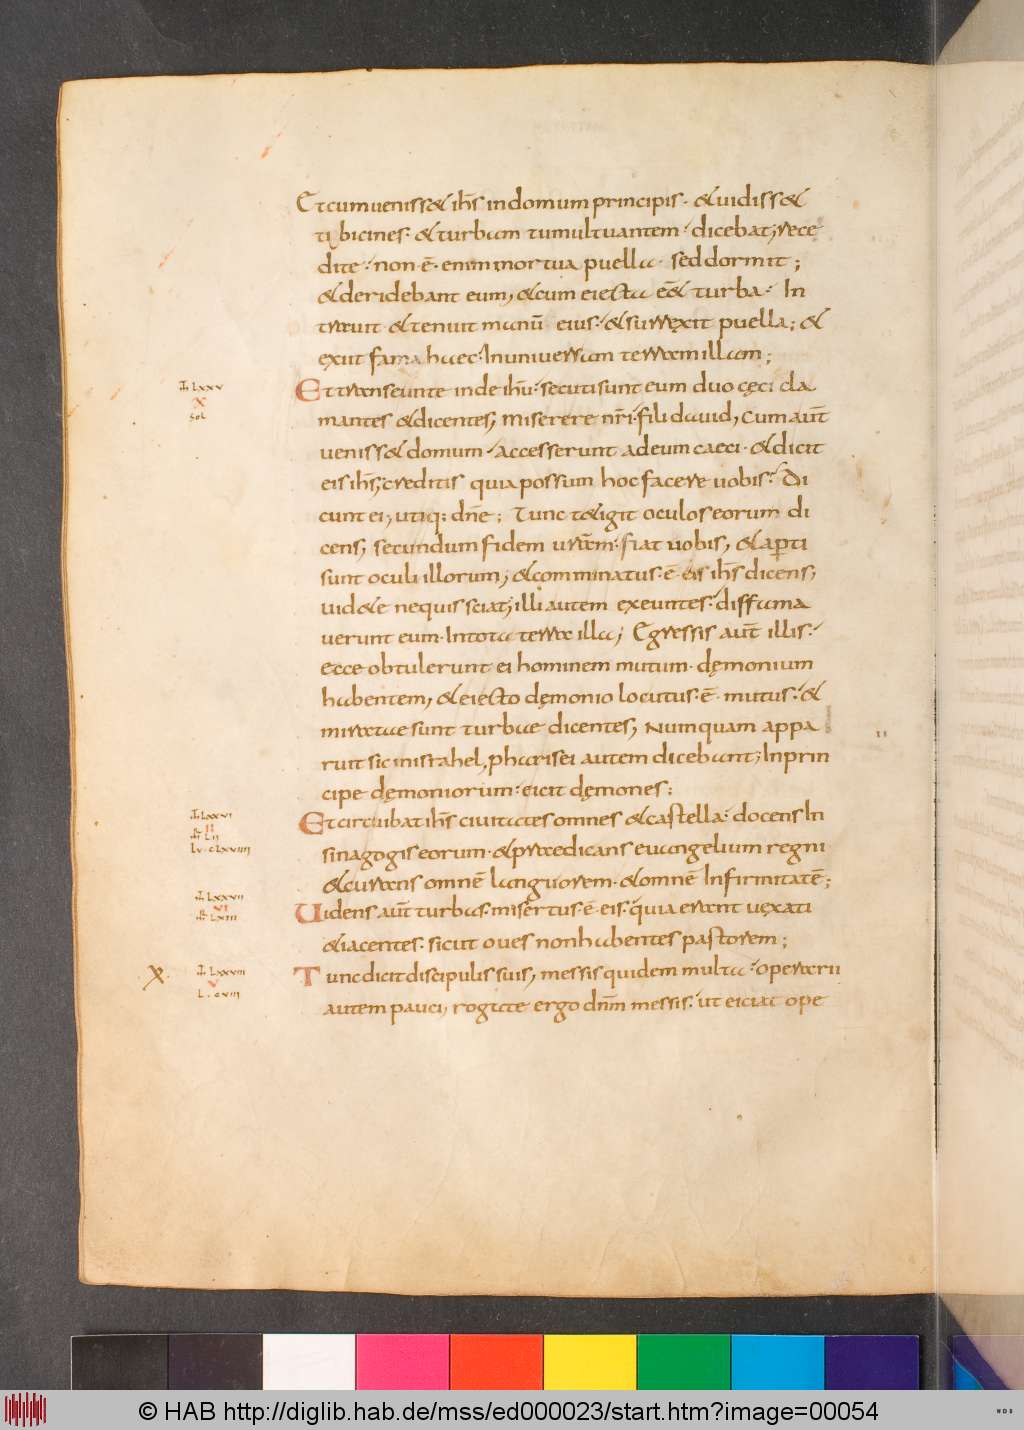 Et cum uenisset ihs̄ in domum principis· et uidisset
tibicines· et turbam tumultuantem· dicebat; rece
dite· non ē· enim mortua puella· sed dormit;
et deridebant eum, et cum eiecta eēt turba· In
trauit et tenuit manū eius· et surrexit puella; et
exiit fama haec· In uniuersam terram illam;
Et transeunte inde ihū· secuti sunt eum duo cęci cla
mantes et dicentes, miserere nr̄i· fili dauid, Cum aut̄
uenisset domum· accesserunt ad eum caeci· et dicit
eis ihs̄, creditis quia possum hoc facere uobis· Di
cunt ei, utiq: dn̄e; Tunc tetigit oculos eorum di
cens, secundum fidem urām· fiat uobis, et apti
sunt oculi illorum, et comminatus· ē· eis ihs̄ dicens,
uidete nequis sciat, illi autem exeuntes· diffama
uerunt eum· In tota terra illa; Egressis aut̄ illis·
ecce obtulerunt ei hominem mutum· dęmonium
habentem, et eiecto dęmonio locutus· ē· mutus· et
miratae sunt turbae dicentes, Numquam appa
ruit sic in israhel, pharisei autem dicebant, In prin
cipe dęmoniorum· eicit dęmones;
Et circuibat ihs̄ ciuitates omnes et castella· docens In
sinagogis eorum· et praedicans euangelium regni
et curans omnē languorem· et omnē Infirmitatē;
Uidens aut̄ turbas· misertus· ē· eis· quia erant uęxati
et iacentes· sicut oues non habentes pastorem;
Tunc dicit discipulis suis, messis quidem multa· operarii
autem pauci, rogate ergo dn̄m messis· ut eiciat ope
LXXV
X
Sol
LXXVI
II
LII
LV·CLXVIIII
LXXVII
VI
LXIII
X·
LXXVIII
V
L·CVIII
© HAB http://diglib.hab.de/mss/ed000023/start.htm?image=00054
WDB